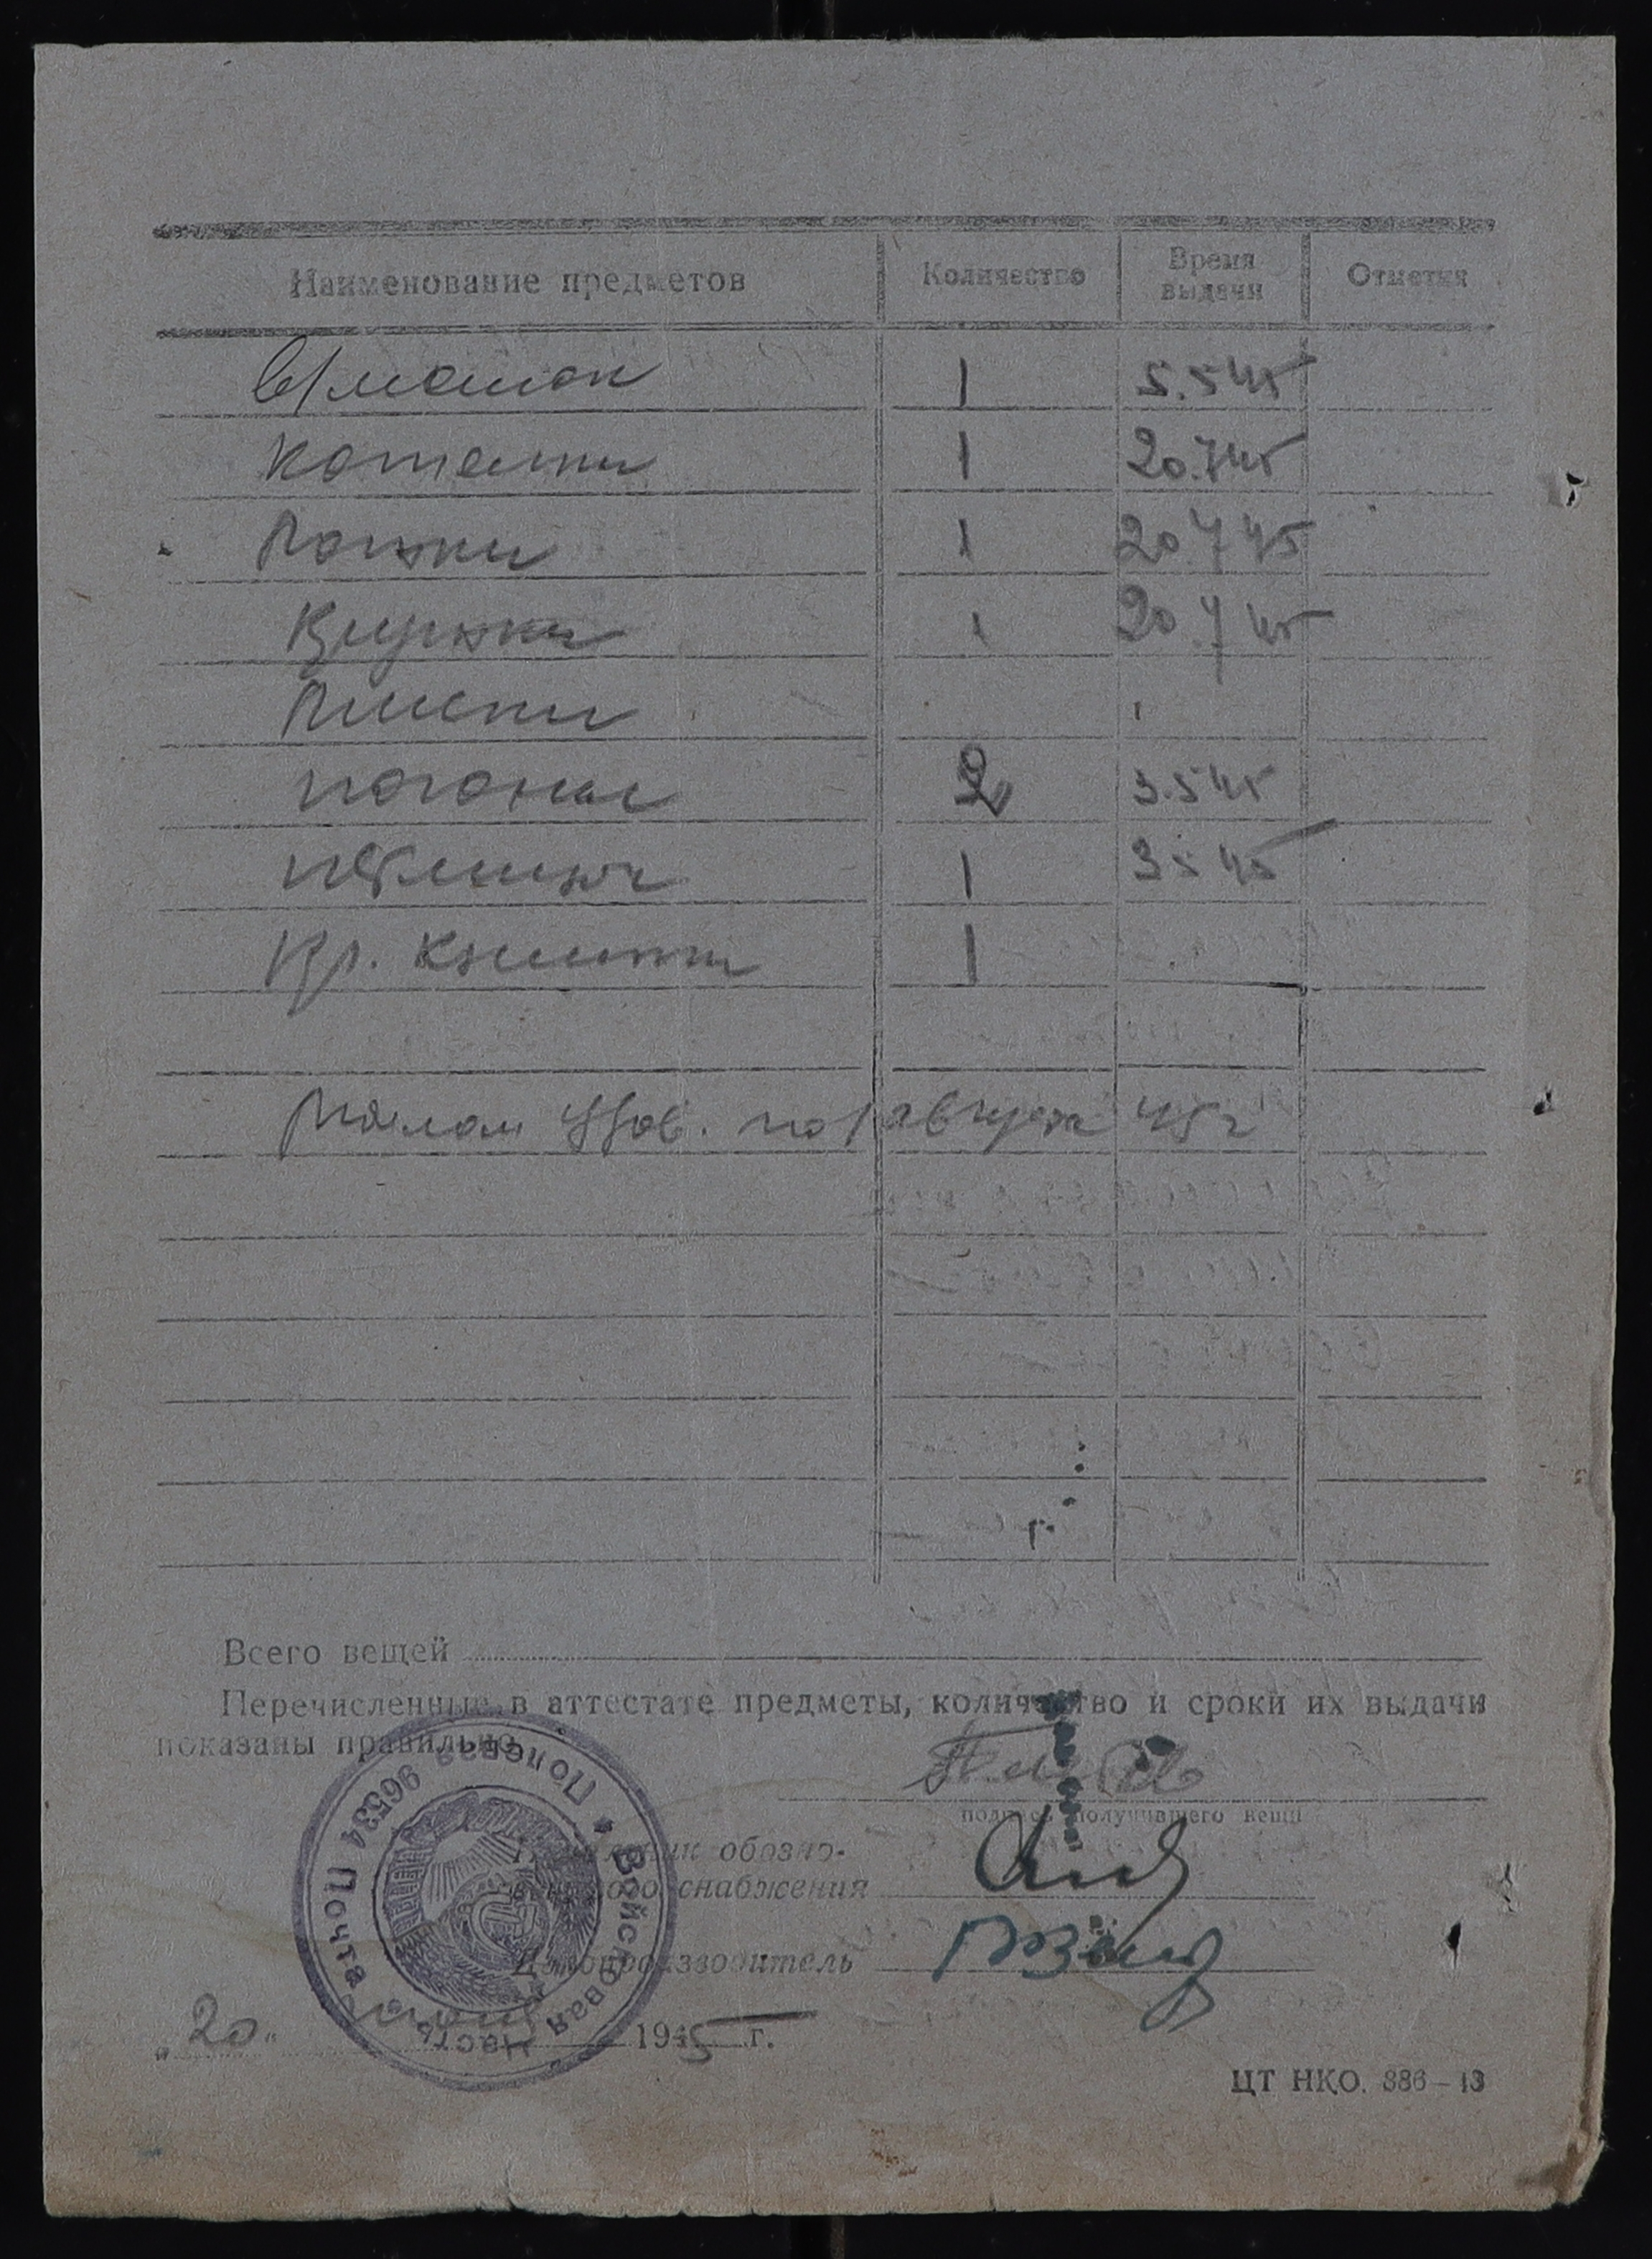 Наименование предметов Количество Время выдачи Отметки
в/мешок 1 5.5 45
Котелки 1 20.7 45
Ложки 1 20 7 45
Кружки 1 20.7 45
погоны 2 3.5 45
петлицы 1 3 5 45
Кр. Книжки 1
по 1 августа 45 г
Всего вещей
Перечисленные в аттестате предметы, количество и сроки их выдачи
показаны правильно
подпись получившего вещи
Начальник обозно-
вещевого снабжения
Делопроизводитель
"20" 1945 г.
Войсковая часть Полевая Почта 96534
ЦТ НКО. 386-43